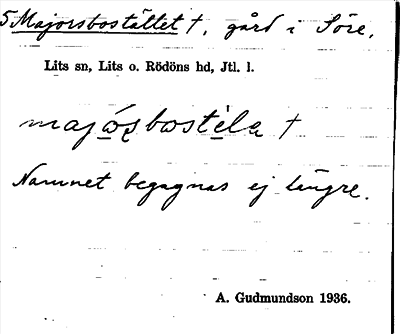 5 Majorsbostället† , gård i Söre,
Lits sn, Lits o. Rödöns hd, Jtl. l.
majósbostéle †
Namnet begagnas ej längre.
A. Gudmundson 1936.